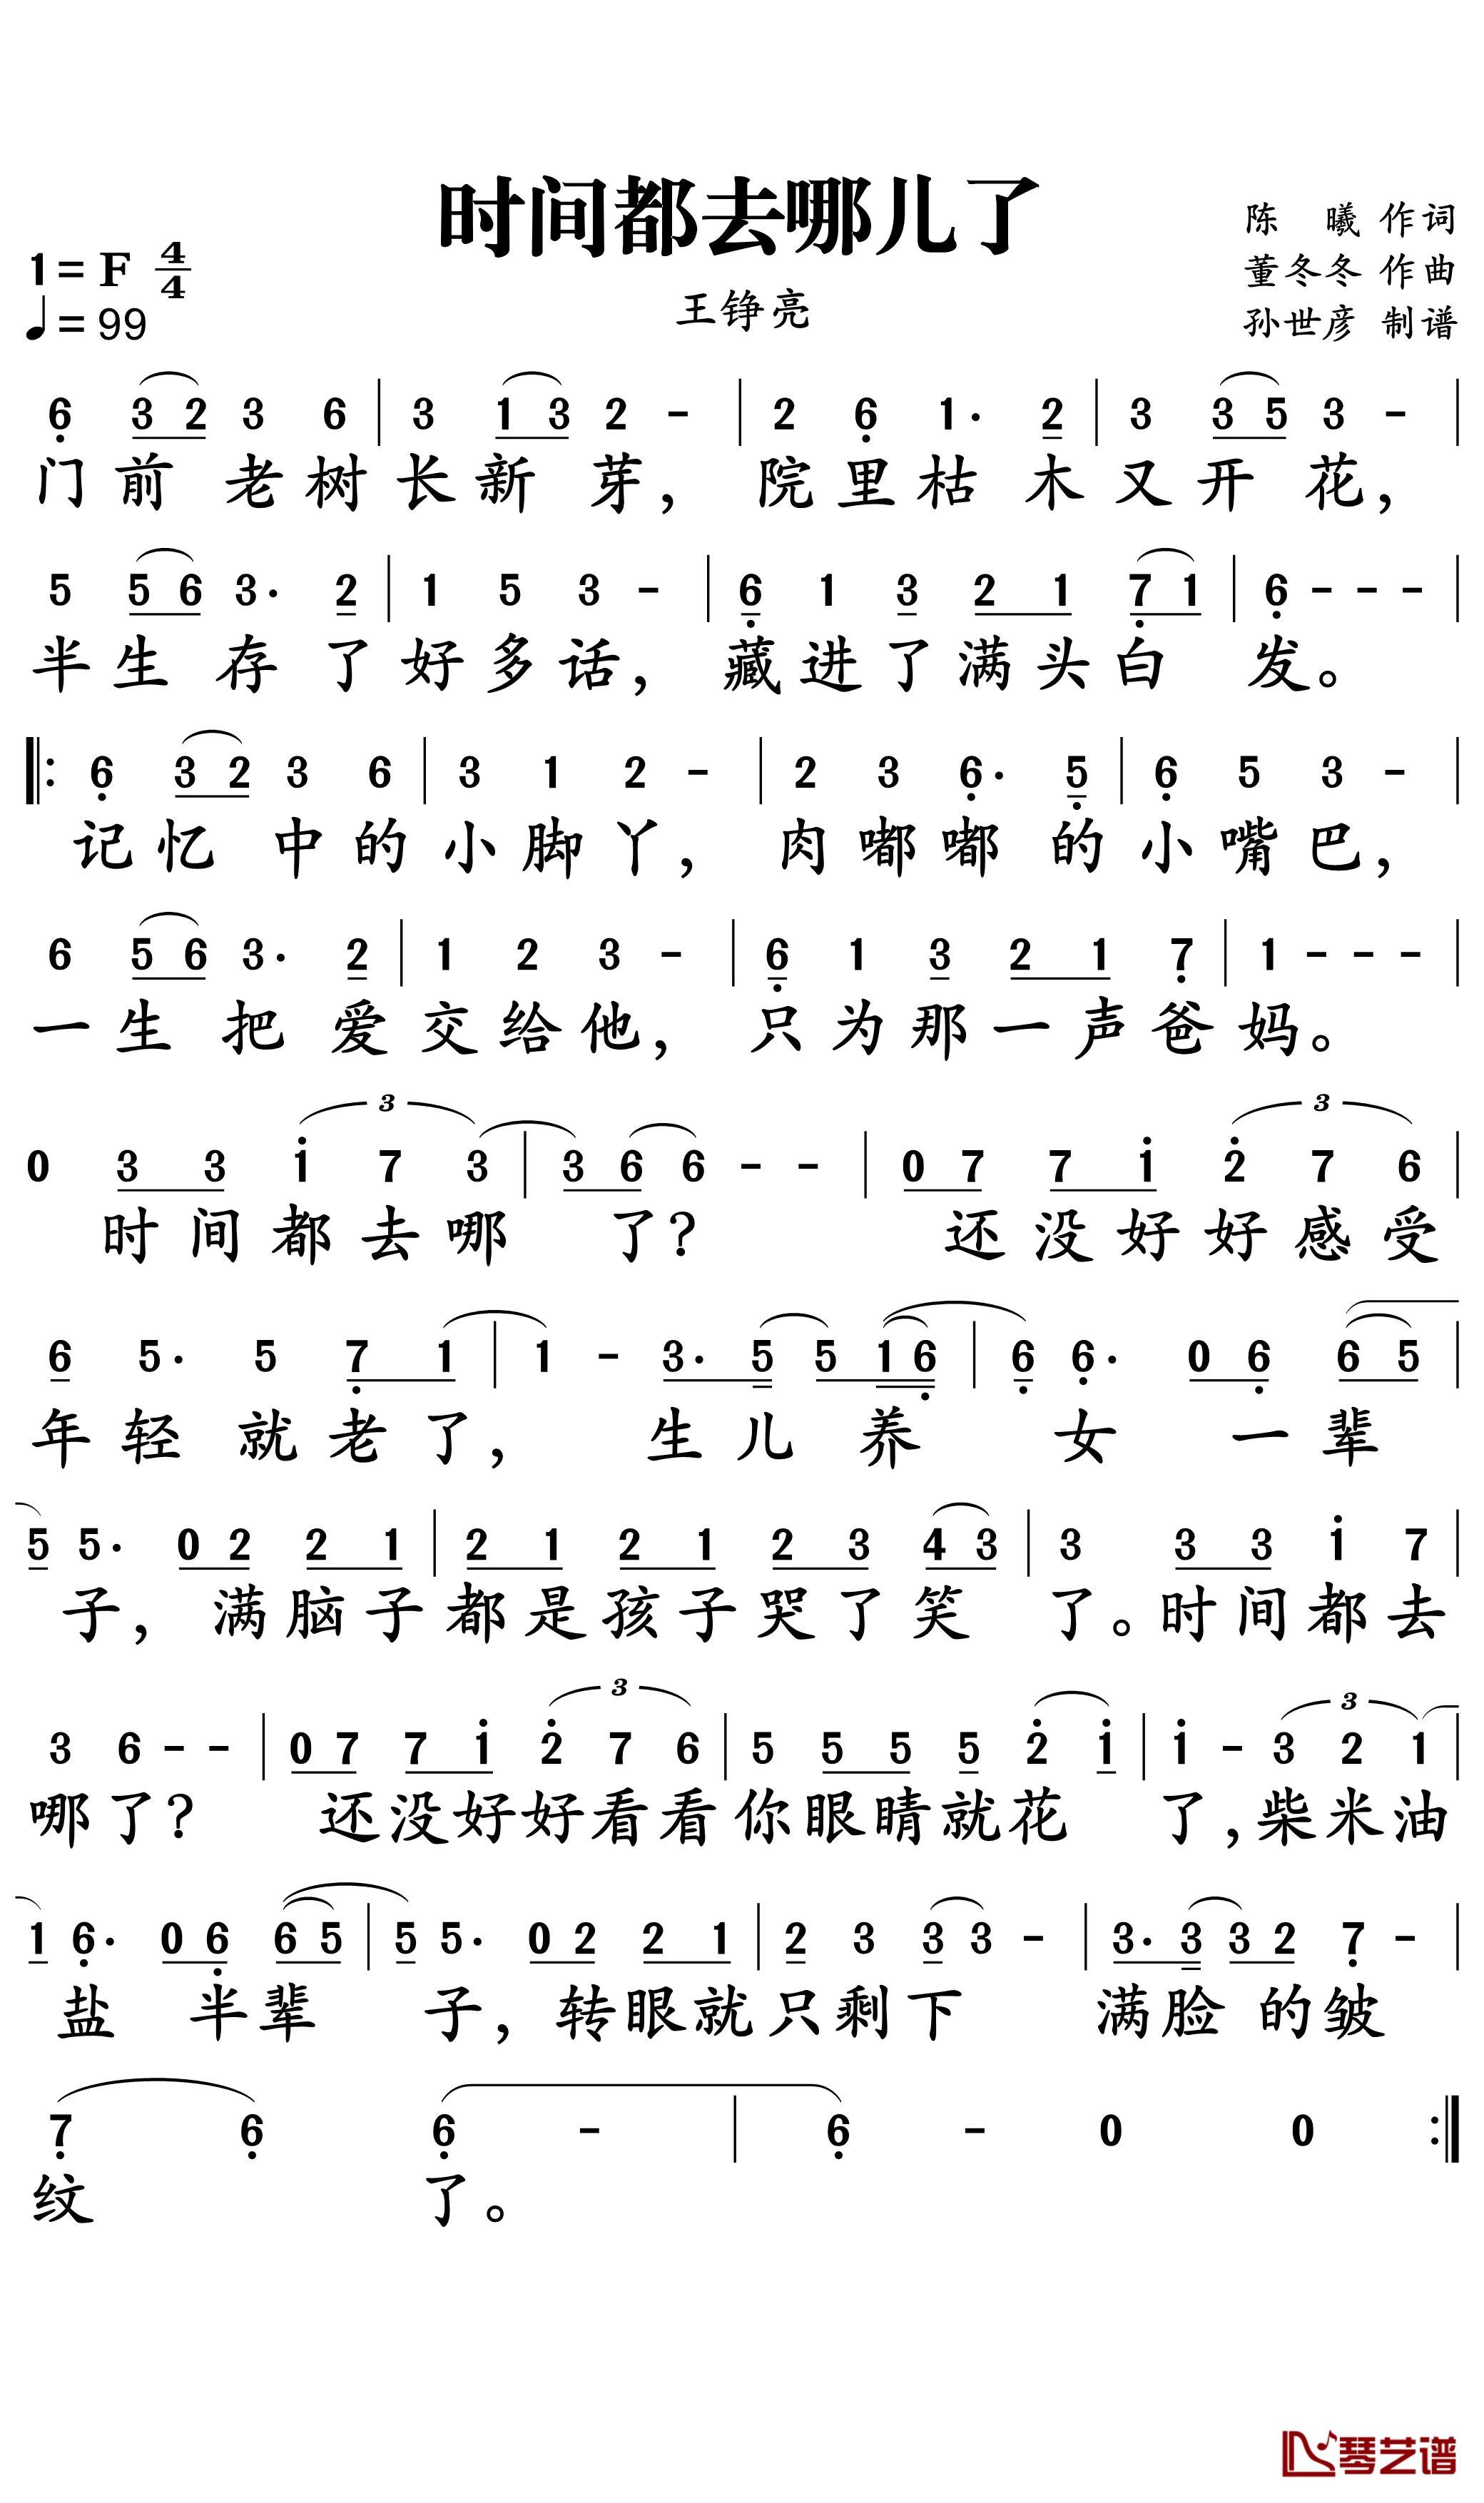 时间都去哪儿了
陈 曦 作词
1=F 4/4
董冬冬 作曲
♩=99
王铮亮
孙世彦 制谱
6̣ 3 2 3 6 | 3 1 3 2 - | 2 6̣ 1· 2 | 3 3 5 3 - |
门前老树长新芽,院里枯木又开花,
5 5 6 3· 2 | 1 5 3 - | 6̣ 1 3 2 1 7̣ 1 | 6̣ - - - |
半生存了好多话,藏进了满头白发。
|: 6̣ 3 2 3 6 | 3 1 2 - | 2 3 6̣· 5̣ | 6̣ 5 3 - |
记忆中的小脚丫,肉嘟嘟的小嘴巴,
6 5 6 3· 2 | 1 2 3 - | 6̣ 1 3 2 1 7̣ | 1 - - - |
一生把爱交给他,只为那一声爸妈。
3 3
0 3 3 1̇ 7 3 | 3 6 6 - - | 0 7 7 1̇ 2̇ 7 6 |
时间都去哪了?还没好好感受
6 5· 5 7̣ 1 | 1 - 3· 5 5 1 6̣ | 6̣ 6̣· 0 6̣ 6 5 |
年轻就老了,生儿养女一辈
5 5· 0 2 2 1 | 2 1 2 1 2 3 4 3 | 3 3 3 1̇ 7 |
子,满脑子都是孩子哭了笑了。时间都去
3 3
3 6 - - | 0 7 7 1̇ 2̇ 7 6 | 5 5 5 5 2̇ 1̇ | 1̇ - 3 2 1 |
哪了?还没好好看看你眼睛就花了,柴米油
1 6̣· 0 6̣ 6 5 | 5 5· 0 2 2 1 | 2 3 3 3 - | 3· 3 3 2 7̣ - |
盐半辈子,转眼就只剩下满脸的皱
7̣ 6̣ 6̣ - | 6̣ - 0 0 :|
纹了。
琴艺谱